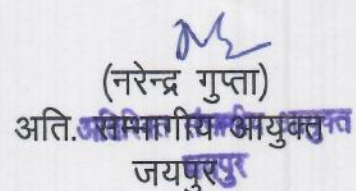 (नरेन्द्र गुप्ता)
अति. सम्भागीय आयुक्त
जयपुर